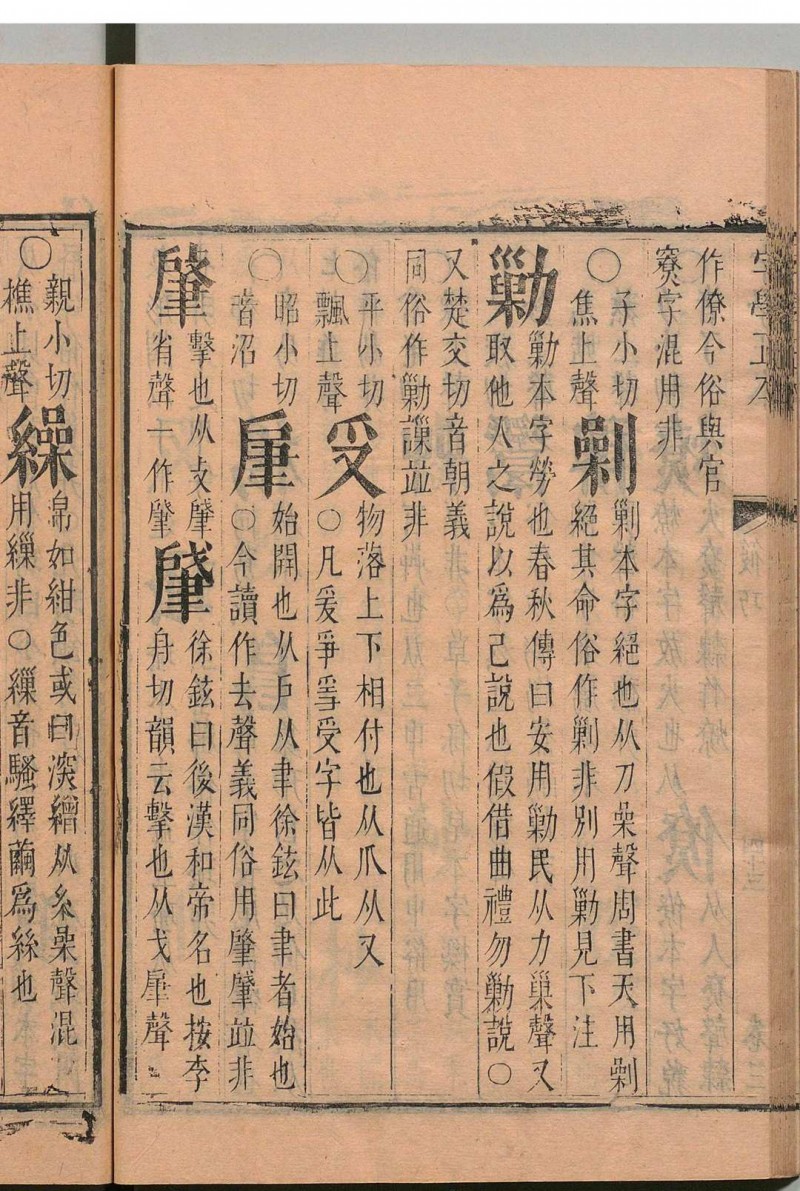 字學正本
作僚今俗與官
寮字混用非
○子小切
焦上聲
𠟪
剿本字絕也从刀喿聲周書天用𠟪
絕其命俗作剿非別用勦見下注
勦
勦本字勞也春秋傳曰安用勦民从力巢聲又
取他人之說以爲己說也假借曲禮勿勦說○
又楚交切音朝義
同俗作勦
並非
○平小切
飄上聲
𠬪
物落上下相付也从爪从又
○凡爰爭受字皆从此
○昭小切
音沼
肁
始開也从戶从聿徐鉉曰聿者始也
○今讀作去聲義同俗用肇肈並非
肇
擊也从攴肁
省聲一作肈
肈
徐鉉曰後漢和帝名也按李
舟切韻云擊也从戈肁聲
○親小切
樵上聲
繰
帛如紺色或曰深繒从糸喿聲混
用繅非○繅音騷繹繭爲絲也